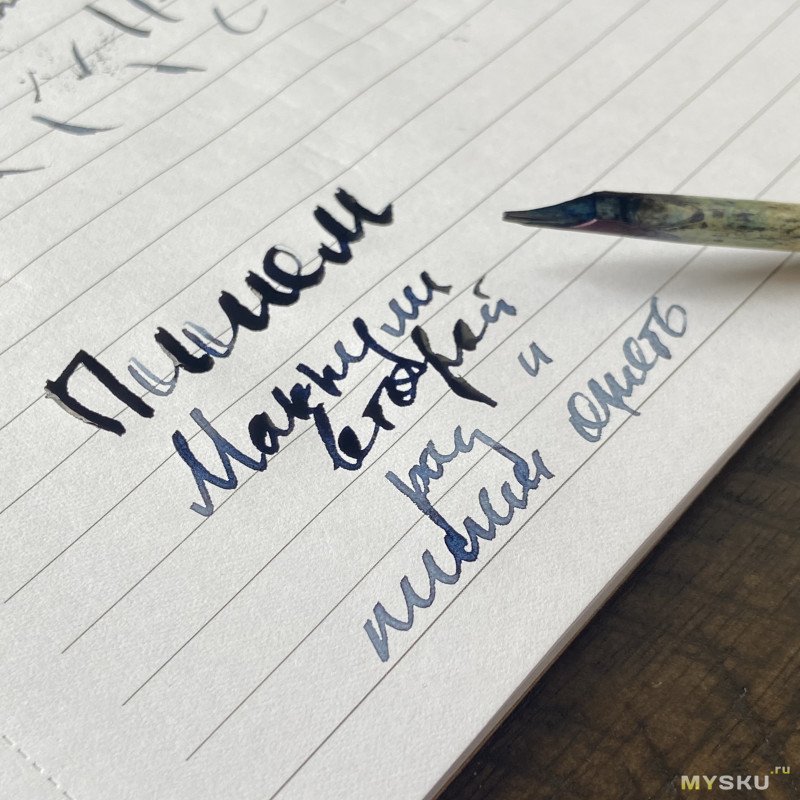 Пишем
Макнули
второй
рад и
пишем опять
MYSKU.ru